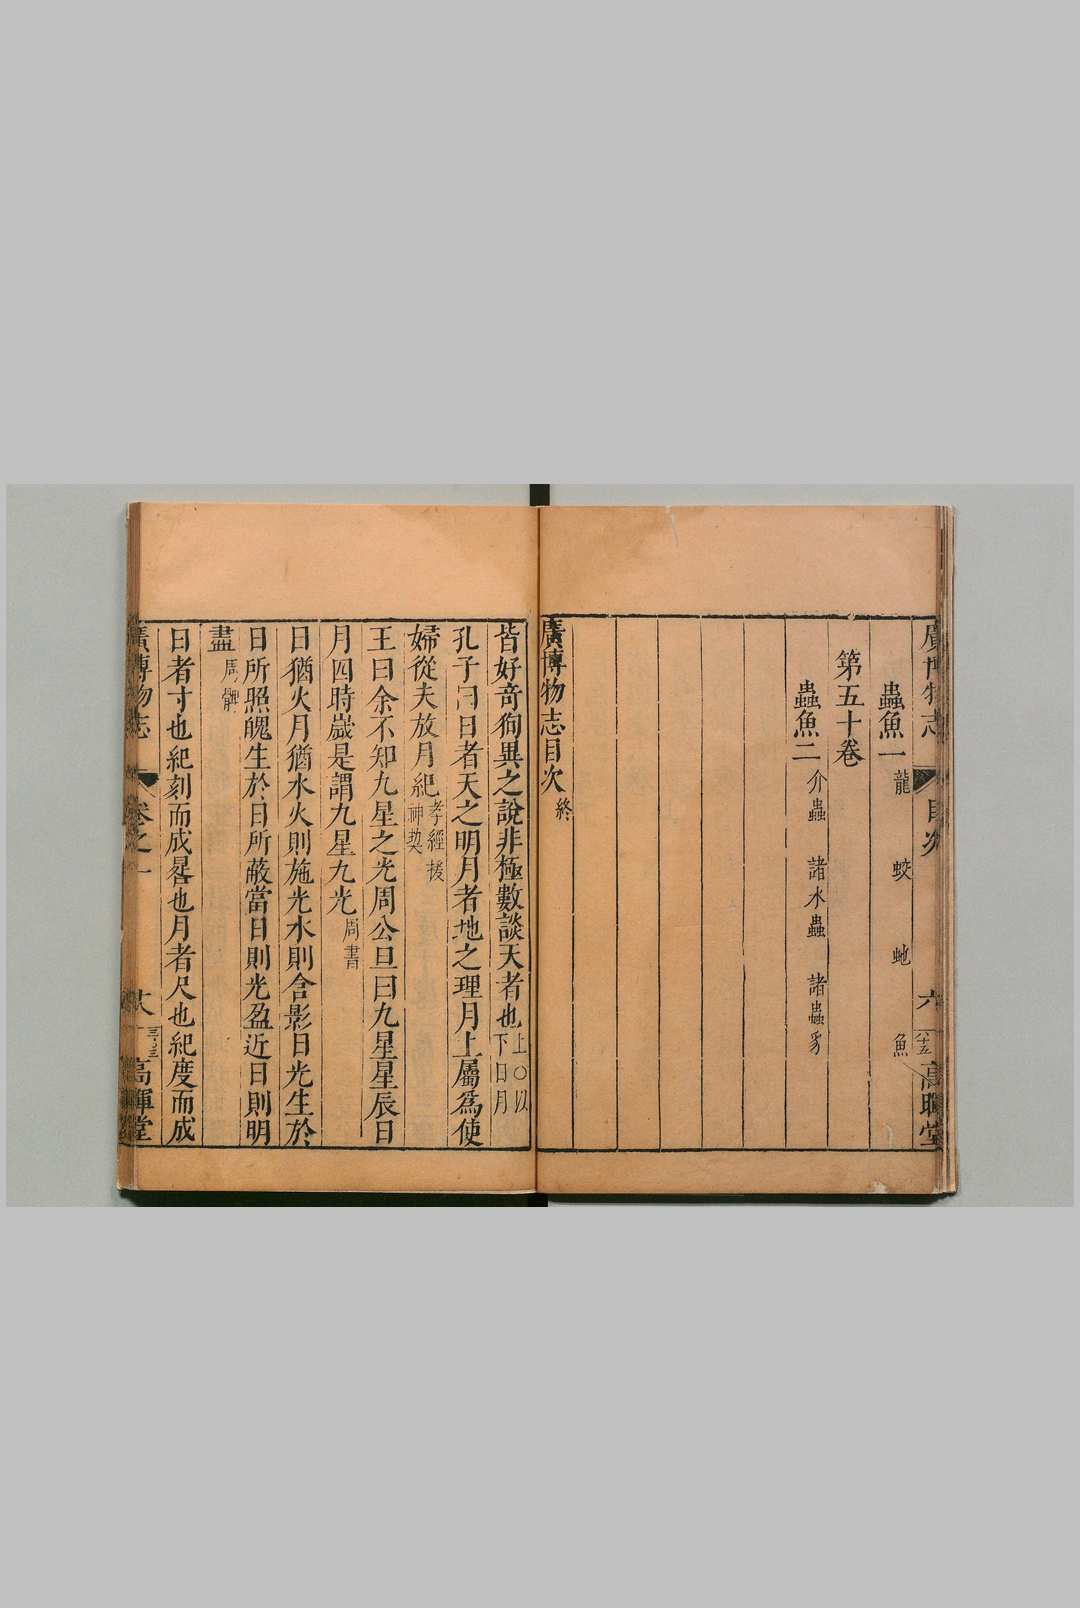 廣博物志 目次 六
蟲魚一 龍 蛟 虵 魚
第五十卷
蟲魚二 介蟲 諸水蟲 諸蟲豸
廣博物志目次終
皆好奇徇異之說非極數談天者也上○以下日月
孔子曰日者天之明月者地之理月上屬爲使
婦從夫放月紀孝經援神契
王曰余不知九星之光周公旦曰九星星辰日
月四時歲是謂九星九光周書
日猶火月猶水火則施光水則含影日光生於
日所照魄生於日所蔽當日則光盈近日則明
盡周髀
日者寸也紀刻而成晷也月者尺也紀度而成
廣博物志 卷之一 高暉堂